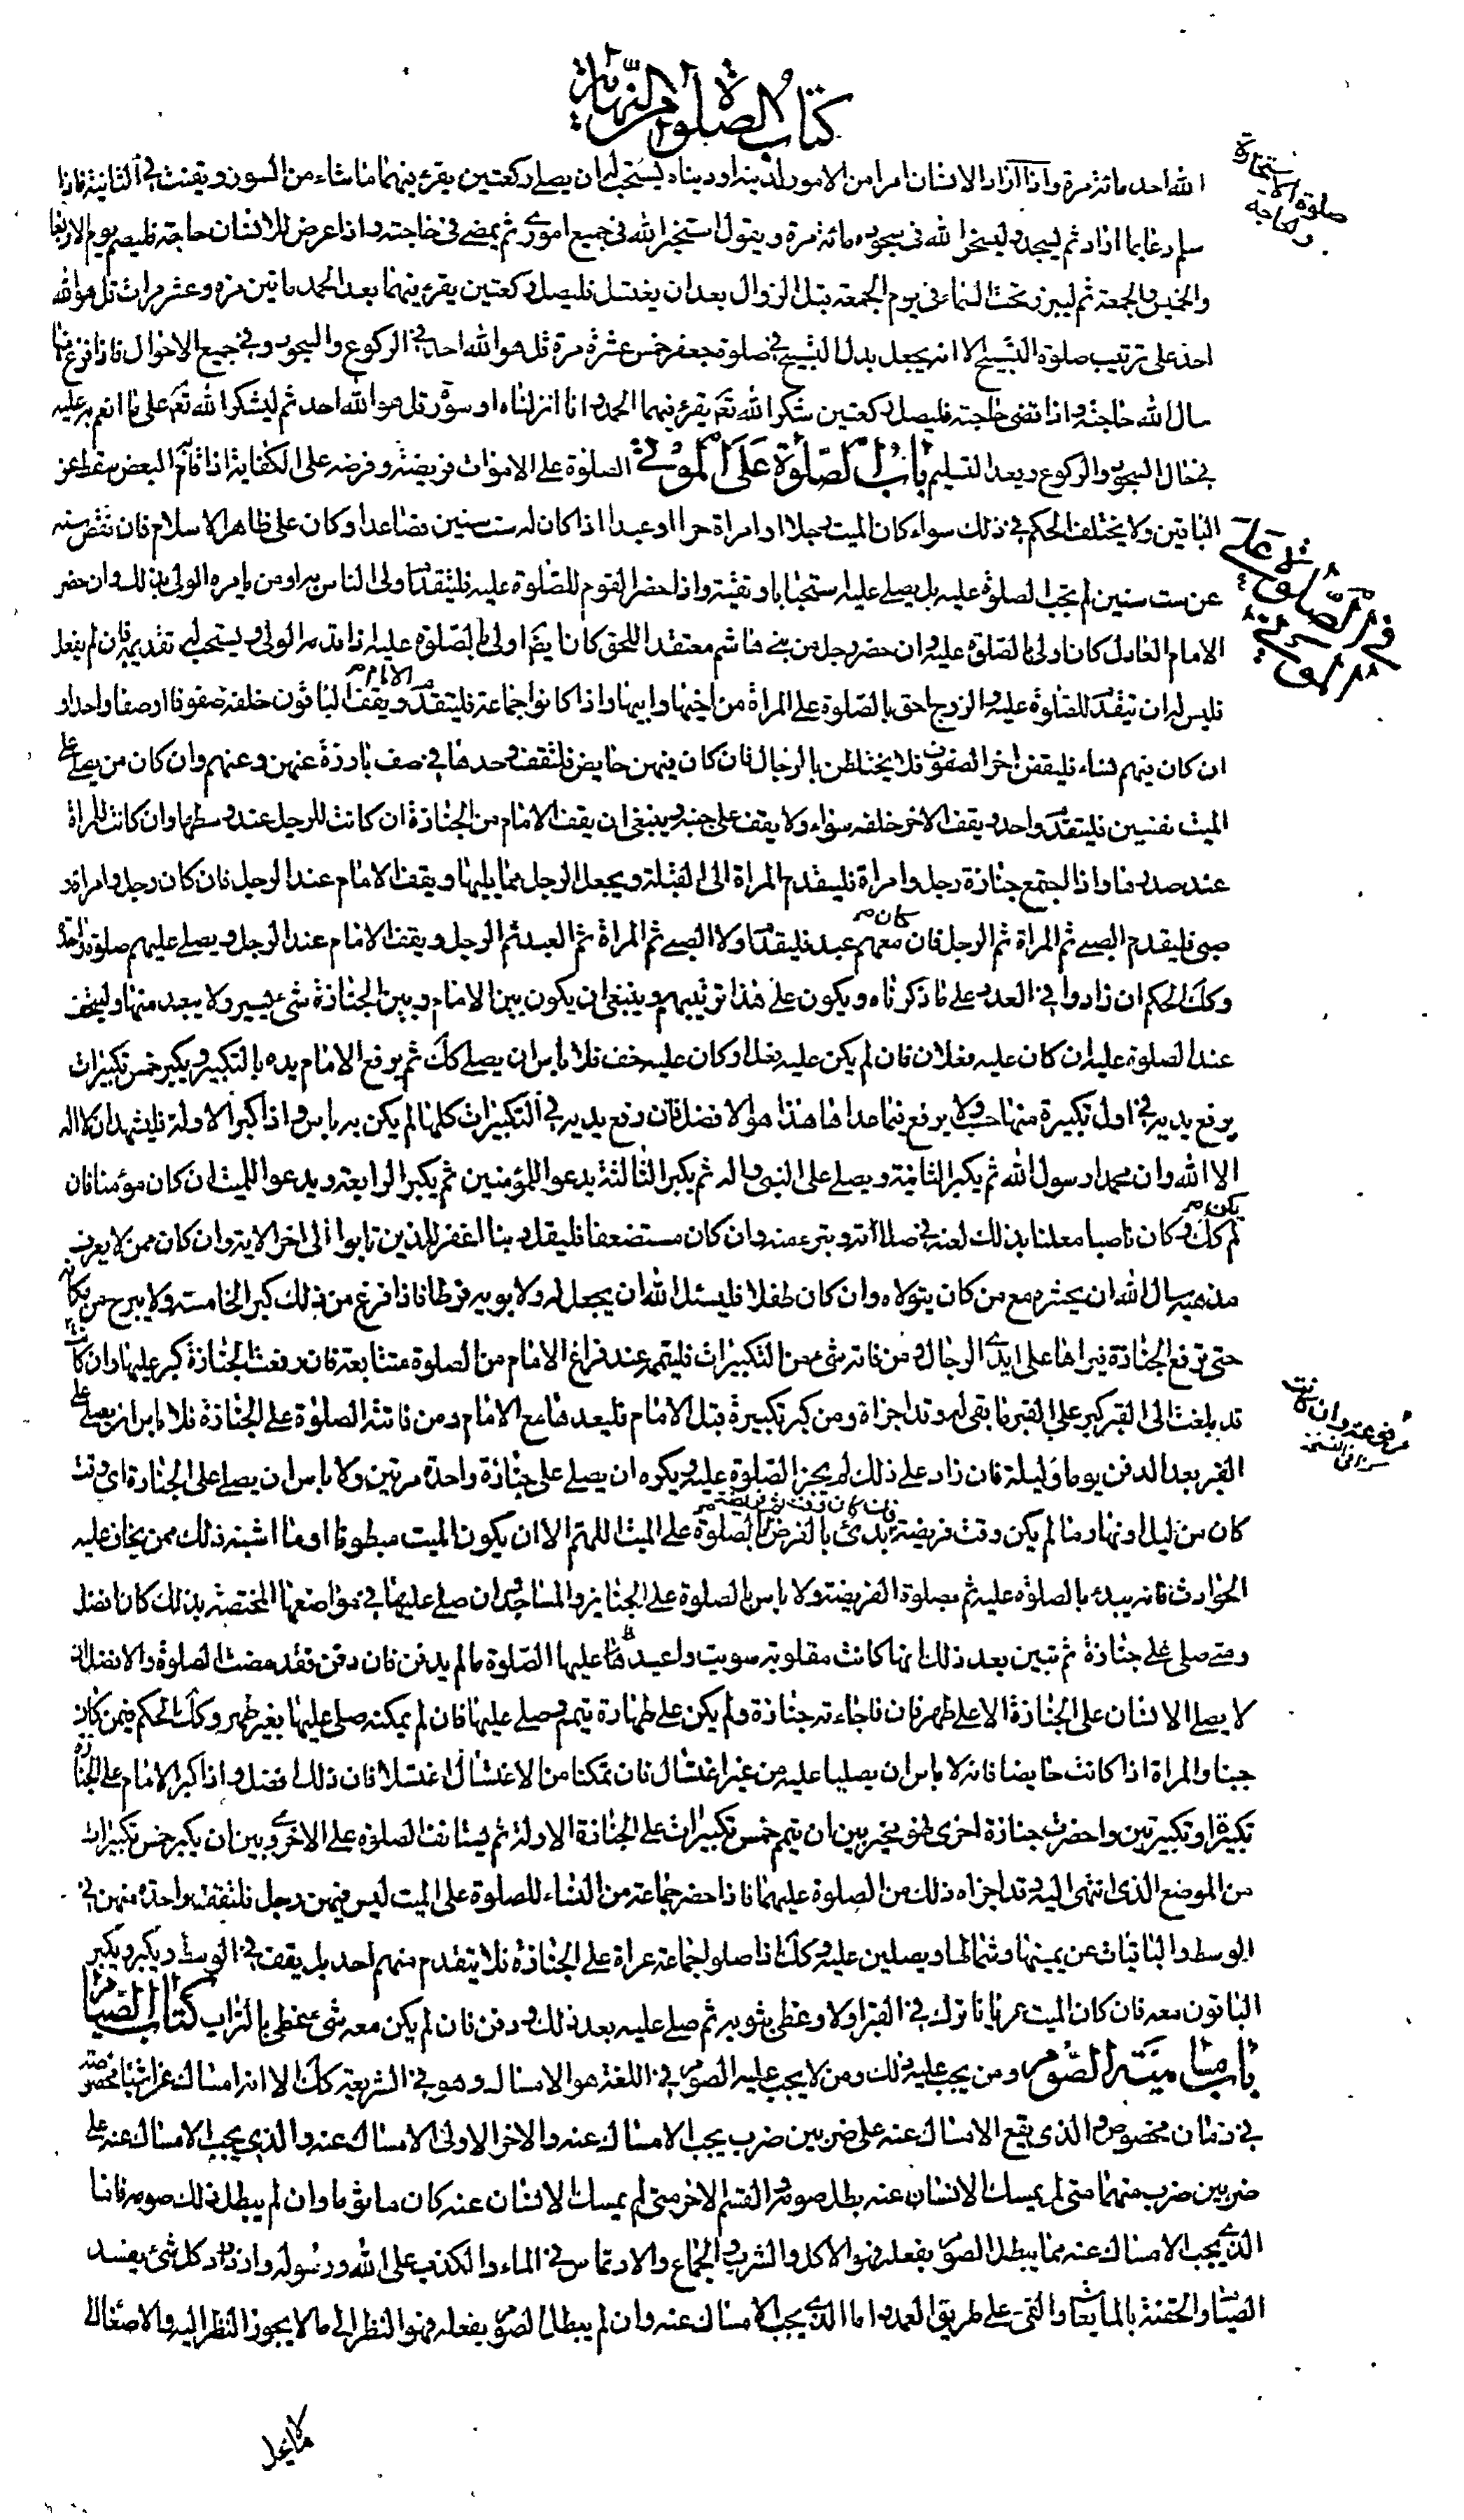 كتاب الصلوة من النهاية
صلوة الاستخارة والحاجة
الله احد مائة مرة واذا اراد الانسان امرا من الامور لدينه او دنياه يستحب له ان يصلي ركعتين يقرء فيهما ما شاء من السور ويقنت في الثانية فاذا
سلم دعا بما اراد ثم ليسجد وليستخر الله في سجوده مائة مرة ويقول استخير الله في جميع اموري ثم يمضي في حاجته واذا عرض للانسان حاجة فليصم يوم الاربعا
والخميس والجمعة ثم ليبرز تحت السماء في يوم الجمعة قبل الزوال بعد ان يغتسل فليصل ركعتين يقرء فيهما بعد الحمد مأتين مرة وعشر مرات قل هو الله
احد على ترتيب صلوة التسبيح الا انه يجعل بدل التسبيح في صلوة جعفر خمس عشرة مرة قل هو الله احد في الركوع والسجود وفي جميع الاحوال فاذا فرغ منها
سال الله حاجته واذا قضى حاجته فليصل ركعتين شكرا لله تع يقرء فيهما الحمد وانا انزلناه او سورة قل هو الله احد ثم ليشكر الله تع على ما انعم به عليه
في حال السجود والركوع وبعد التسليم باب الصلوة على الموتى الصلوة على الاموات فريضة وفرضه على الكفاية اذا قام به البعض سقط عن
الباقين ولا يختلف الحكم في ذلك سواء كان الميت رجلا او امراة حرا او عبدا اذا كان له ست سنين فصاعدا وكان على ظاهر الاسلام فان نقص سنه
في الصلوة على الموتى
عن ست سنين لم تجب الصلوة عليه بل يصلى عليه استحبابا وتقية واذا حضر القوم للصلوة عليه فليتقدم اولى الناس به او من يامره الولي بذلك وان حضر
الامام العادل كان اولى بالصلوة عليه وان حضر رجل من بني هاشم معتقدا للحق كان ايضا اولى بالصلوة عليه اذا قدمه الولي ويستحب له تقديمه فان لم يفعل
فليس له ان يتقدم للصلوة عليه والزوج احق بالصلوة على المراة من اخيها وابيها واذا كانوا جماعة فليتقدم الامام ويقف الباقون خلفه صفوفا او صفا واحدا و
ان كان فيهم نساء فليقفن اخر الصفوف فلا يختلطن بالرجال فان كان فيهن حايض فلتقف وحدها في صف بارزة عنهن وعنهم وان كان من يصلي على
الميت نفسين فليتقدم واحد ويقف الاخر خلفه سواء ولا يقف على جنبه وينبغي ان يقف الامام من الجنازة ان كانت للرجل عند وسطها وان كانت للمراة
عند صدرها واذا اجتمع جنازة رجل وامراة فليقدم المراة الى القبلة ويجعل الرجل مما يليها ويقف الامام عند الرجل فان كان رجل وامراة و
صبي فليقدم الصبي ثم المراة ثم الرجل فان كان معهم عبد فليقدم اولا الصبي ثم المراة ثم العبد ثم الرجل ويقف الامام عند الرجل ويصلي عليهم صلوة واحدة
وكك الحكم ان زادوا في العدد على ما ذكرناه ويكون على هذا ترتيبهم وينبغي ان يكون بين الامام وبين الجنازة شيء يسير ولا يبعد منها وليتحف
عند الصلوة عليه ان كان عليه نعلان فان لم يكن عليه نعل او كان عليه خف فلا باس ان يصلي كك ثم يرفع الامام يده بالتكبير ويكبر خمس تكبيرات
يرفع يديه في اول تكبيرة منها حسب ولا يرفع فيما عداها هذا هو الافضل فان رفع يديه في التكبيرات كلها لم يكن به باس واذا كبر الاولة فليشهد ان لا اله
الا الله وان محمدا رسول الله ثم يكبر الثانية ويصلي على النبي واله ثم يكبر الثالثة يدعو للمؤمنين ثم يكبر الرابعة ويدعو للميت ان كان مؤمنا فان
لم يكن كك وكان ناصبا معلنا بذلك لعنه في صلاته وتبرء منه وان كان مستضعفا فليقل ربنا اغفر للذين تابوا الى اخر الاية وان كان ممن لا يعرف
مذهبه سال الله ان يحشره مع من كان يتولاه وان كان طفلا فليسئل الله ان يجعله له ولابويه فرطا فاذا فرغ من ذلك كبر الخامسة ولا يبرح من مكانه
حتى ترفع الجنازة فيراها على ايدي الرجال ومن فاته شيء من التكبيرات فليتمه عند فراغ الامام من الصلوة متتابعة فان رفعت الجنازة كبر عليها وان كانت
قد بلغت الى القبر كبر على القبر ما بقى له وقد اجزاه ومن كبر تكبيرة قبل الامام فليعدها مع الامام ومن فاتته الصلوة على الجنازة فلا باس ان يصلي على
القبر بعد الدفن يوما وليلة فان زاد على ذلك لم يجز الصلوة عليه ويكره ان يصلي على جنازة واحدة مرتين ولا باس ان يصلي على الجنازة اي وقت
كان من ليل او نهار ما لم يكن وقت فريضة فان كان وقت فريضة بدئ بالفرض ثم الصلوة على الميت اللهم الا ان يكون الميت مبطونا او ما اشبه ذلك ممن يخاف عليه
الحوادث فانه يبدء بالصلوة عليه ثم بصلوة الفريضة ولا باس بالصلوة على الجنايز في المساجد وان صلي عليها في مواضعها المختصة بذلك كان افضل
ومتى صلي على جنازة ثم تبين بعد ذلك انها كانت مقلوبة سويت واعيد عليها الصلوة ما لم يدفن فان دفن فقد مضت الصلوة والافضل ان
لا يصلي الانسان على الجنازة الا على طهر فان فاجاءته جنازة ولم يكن على طهارة تيمم وصلى عليها فان لم يمكنه صلى عليها بغير طهر وكك الحكم فيمن كان
جنبا والمراة اذا كانت حايضا فانه لا باس ان يصليا عليه من غير اغتسال فان تمكنا من الاغتسال اغتسلا فان ذلك افضل واذا كبر الامام على الجنازة
تكبيرة او تكبيرتين واحضرت جنازة اخرى فهو مخير بين ان يتم خمس تكبيرات على الجنازة الاولة ثم يستانف الصلوة على الاخرى وبين ان يكبر خمس تكبيرات
من الموضع الذي انتهى اليه وقد اجزاه ذلك من الصلوة عليهما فاذا حضر جماعة من النساء للصلوة على الميت ليس فيهن رجل فلتقف واحدة منهن في
الوسط والباقيات عن يمينها وشمالها ويصلين عليه وكك اذا صلوا جماعة عراة على الجنازة فلا يتقدم منهم احد بل يقف في الوسط ويكبر ويكبر
الباقون معه فان كان الميت عريانا ترك في القبر اولا وغطي بثوبه ثم صلي عليه بعد ذلك ودفن فان لم يكن معه شيء غطي بالتراب كتاب الصيام
باب ماهية الصوم ومن يجب عليه ذلك ومن لا يجب عليه الصوم في اللغة هو الامساك وهو في الشريعة كك الا انه امساك عن اشياء مخصوصة
في زمان مخصوص والذي يقع الامساك عنه على ضربين ضرب يجب الامساك عنه والاخر الاولى الامساك عنه والذي يجب الامساك عنه على
ضربين ضرب منهما متى لم يمسك الانسان عنه بطل صومه والقسم الاخر متى لم يمسك الانسان عنه كان ماثوما وان لم يبطل ذلك صومه فاما
الذي يجب الامساك عنه مما يبطل الصوم بفعله فهو الاكل والشرب والجماع والارتماس في الماء والكذب على الله ورسوله وازدراد كل شيء يفسد
الصيام والحقنة بالمايعات والقيء على طريق العمد واما الذي يجب الامساك عنه وان لم يبطل الصوم بفعله فهو النظر الى ما لا يجوز النظر اليه والاصغاء الى